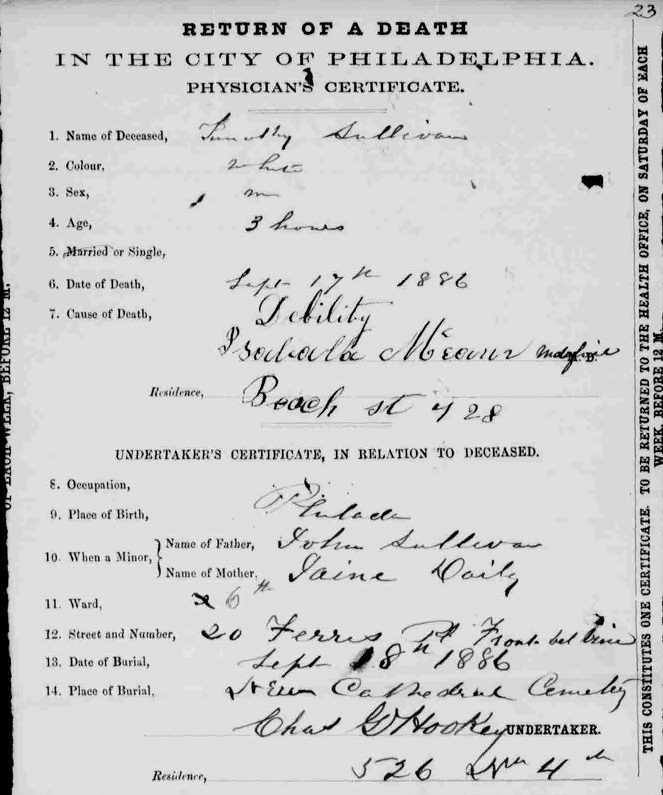 23
RETURN OF A DEATH
IN THE CITY OF PHILADELPHIA.
PHYSICIAN'S CERTIFICATE.
1. Name of Deceased, Timothy Sullivan
2. Colour, White
3. Sex, m
4. Age, 3 hours
5. Married or Single,
6. Date of Death, Sept 17th 1886
7. Cause of Death, Debility
Isabala
Residence, Beach st 428
UNDERTAKER'S CERTIFICATE, IN RELATION TO DECEASED.
8. Occupation,
9. Place of Birth, Philada
10. When a Minor, Name of Father, John Sullivan
Name of Mother, Jaine Daily
11. Ward, 6th
12. Street and Number, 20 Ferris Front bel
13. Date of Burial, Sept 18th 1886
14. Place of Burial, New Cathedral Cemetery
Chas G Hookey UNDERTAKER.
Residence, 526 Nth 4th
THIS CONSTITUTES ONE CERTIFICATE. TO BE RETURNED TO THE HEALTH OFFICE, ON SATURDAY OF EACH
WEEK, BEFORE 12 M.
OF EACH WEEK, BEFORE 12 M.